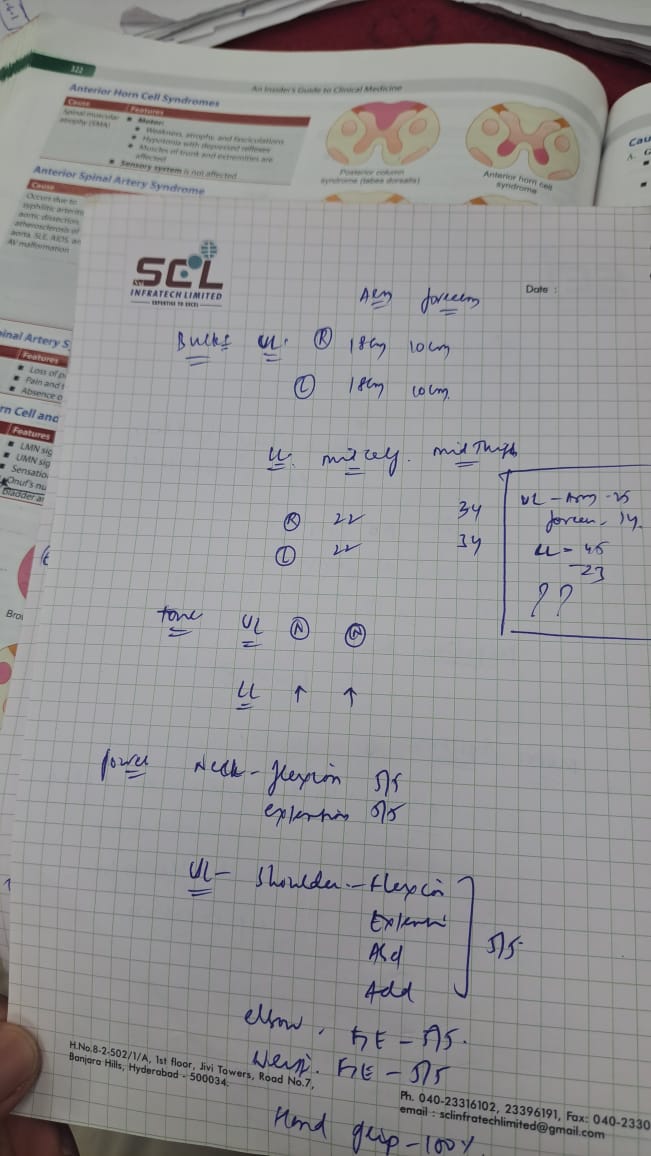 322
An Insider's Guide to Clinical Medicine
Anterior Horn Cell Syndromes
Cause Features
Spinal muscular atrophy (SMA)
Motor:
Weakness, atrophy, and fasciculations
Hypotonia with depressed reflexes
Muscles of trunk and extremities are affected
Sensory system is not affected
Posterior column syndrome (tabes dorsalis)
Anterior horn cell syndrome
Anterior Spinal Artery Syndrome
Cause
Occurs due to
syphilitic arteritis
aortic dissection,
atherosclerosis of
aorta, SLE, AIDS,
AV malformation
inal Artery S
Features
Loss of
Pain and
Absence
rn Cell and
Features
LMN sig
UMN sig
Sensatio
Onuf's nu
bladder a
Cau
SCL
INFRATECH LIMITED
EXPERTISE TO EXCEL
Date :
Arm forearm
Bulk UL. R 18cm 10cm
L 18cm 10cm
LL. mid calf. mid Thigh
R 22 34
L 22 34
UL - Arm - 25
forearm - 14
LL = 45
23
??
tone UL N N
LL ↑ ↑
power Neck - flexion 5/5
extension 5/5
UL - Shoulder - Flexion
Extension
Abd
Add
5/5
elbow. F, E - 5/5.
Wrist. F, E - 5/5
Hand grip - 100%
H.No.8-2-502/1/A, 1st floor, Jivi Towers, Road No.7,
Banjara Hills, Hyderabad - 500034.
Ph. 040-23316102, 23396191, Fax: 040-2330
email : sclinfratechlimited@gmail.com